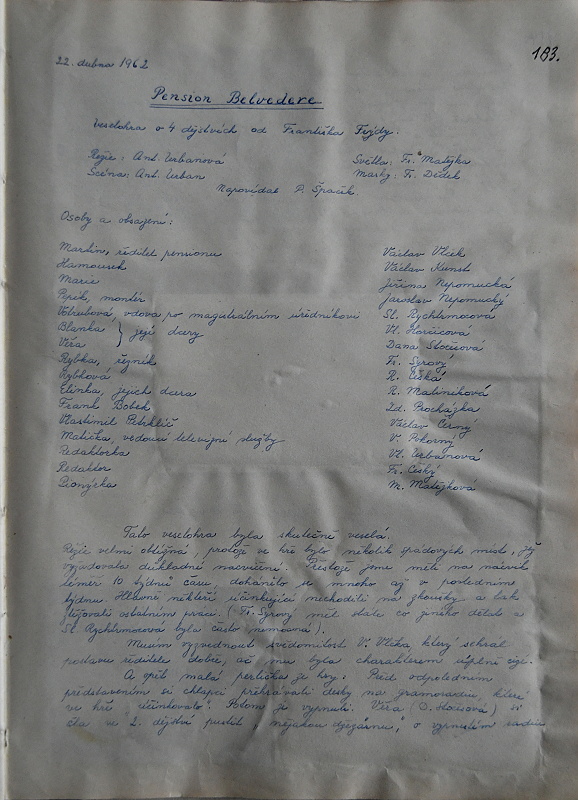 183.
22. dubna 1962
Pension Belvedere
Veselohra o 4 dějstvích od Františka Fijdy.
Režie: Ant. Urbanová Světla: Fr. Matějka
Scéna: Ant. Urban Masky: Fr. Dědek
Napovídal P. Špaček.
Osoby a obsazení:
Martin, ředitel pensionu Václav Vlček
Hamousek Václav Kunst
Marie Jiřina Nepomucká
Pepek, montér Jaroslav Nepomucký
Votrubová, vdova po magistrálním úředníkovi Sl. Rychtrmocová
Blanka } její dcery Vl. Horčicová
Věra Dana Stočesová
Rybka, řezník Fr. Syrový
Rybková R. Češká
Elinka, jejich dcera R. Maliníková
Frank Bobek Zd. Procházka
Vlastimil Petrklíč Václav Černý
Matička, vedoucí televizní služby V. Pokorný
Redaktorka Vl. Urbanová
Redaktor Fr. Český
Pionýrka M. Matějková
Tato veselohra byla skutečně veselá.
Režie velmi obtížná, protože ve hře bylo několik spádových míst, jež
vyžadovala důkladné nacvičení. Přestože jsme měli na nácvik
téměř 10 týdnů času, dohánělo se mnoho až v posledním
týdnu. Hlavně někteří účinkující nechodili na zkoušky a tak
ztěžovali ostatním práci. (Fr. Syrový měl stále co jiného dělat a
Sl. Rychtrmocová byla často nemocná).
Musím vyzvednouti svědomitost V. Vlčka, který sehrál
postavu ředitele dobře, ač mu byla charakterem úplně cizí.
A opět malá perlička ze hry: Před odpoledním
představením si chlapci přehrávali desky na gramorádiu, které
ve hře "účinkovalo". Potom je vypnuli. Věra (D. Stočesová) si
šla ve 2. dějství pustit "nějakou džezárnu," o vypnutém radiu